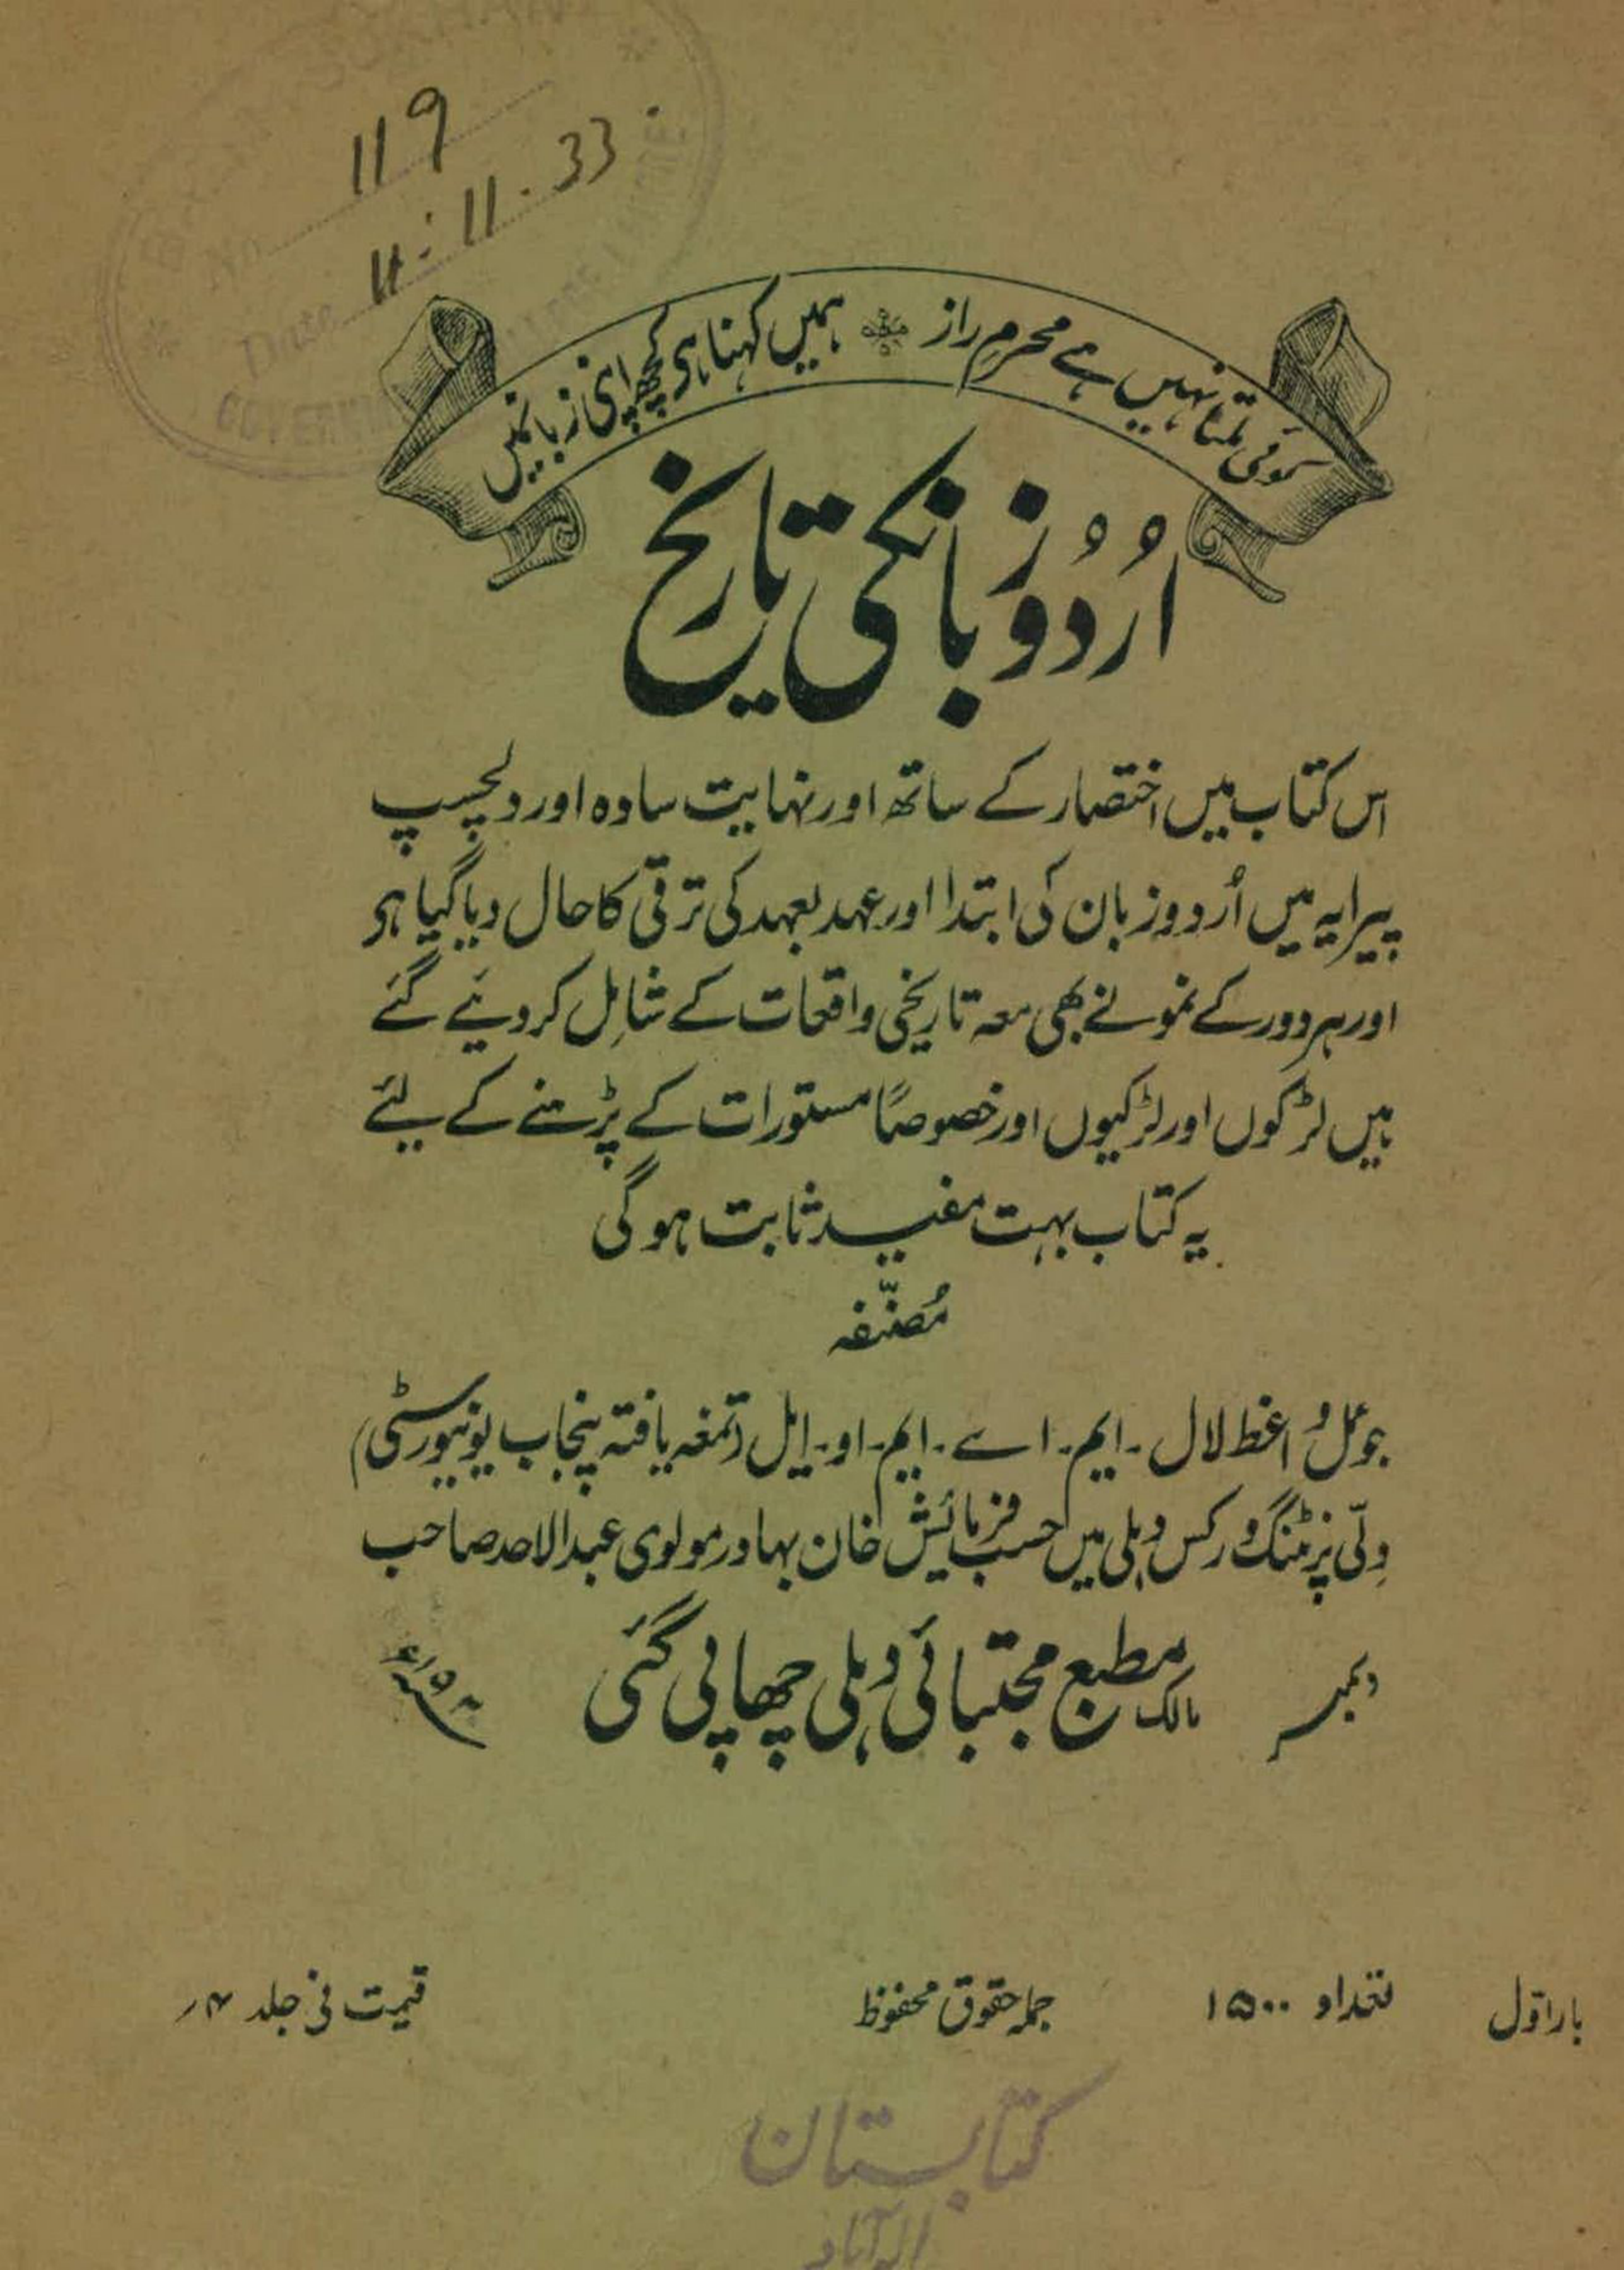 BAZM-I-SUKHAN
No 119
Date 11.11.33.
GOVERNMENT COLLEGE LAHORE
کوئی تمنا نہیں ہے محرمِ راز ہمیں کہنا ہی کچھ اپنی زبانمیں
اُردُو زبانکی تاریخ
اس کتاب میں اختصار کے ساتھ اور نہایت سادہ اور دلچسپ
پیرایہ میں اُردو زبان کی ابتدا اور عہد بعہد کی ترقی کا حال دیا گیا ہی
اور ہر دور کے نمونے بھی معہ تاریخی واقعات کے شامِل کر دیئے گئے
ہیں لڑکوں اور لڑکیوں اور خصوصاً مستورات کے پڑہنے کے لیئے
یہ کتاب بہت مفید ثابت ہوگی
مُصنّفہ
جوئل واعظ لال - ایم - اے - ایم - او - ایل (تمغہ یافتہ پنجاب یونیورسٹی)
دِلّی پرنٹنگ ورکس دہلی میں حسب فرمائیش خان بہادر مولوی عبدالاحد صاحب
دسمبر مالک مطبع مجتبائی دہلی چھاپی گئی
بار اوّل تعداد ۱۵۰۰ جملہ حقوق محفوظ قیمت فی جلد ۴؍
کتابستان
الہ آباد